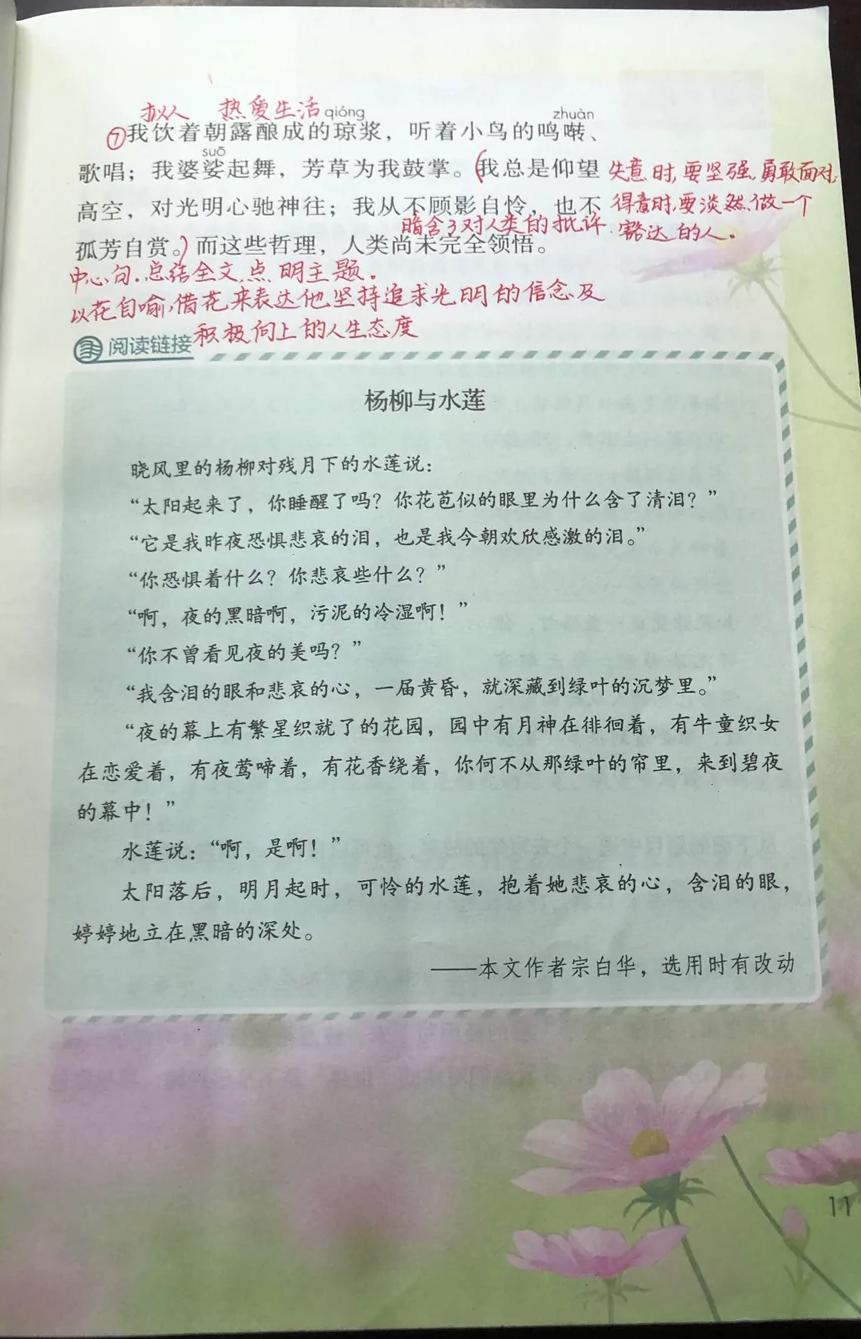 拟人 热爱生活 qióng zhuàn
⑦我饮着朝露酿成的琼浆，听着小鸟的鸣啭、
suō
歌唱；我婆娑起舞，芳草为我鼓掌。（我总是仰望 失意时，要坚强，勇敢面对
高空，对光明心驰神往；我从不顾影自怜，也不 得意时，要淡然，做一个
暗含了对人类的批评 豁达的人。
孤芳自赏。）而这些哲理，人类尚未完全领悟。
中心句，总结全文，点明主题。
以花自喻，借花来表达他坚持追求光明的信念及
积极向上的人生态度
阅读链接
杨柳与水莲
晓风里的杨柳对残月下的水莲说：
“太阳起来了，你睡醒了吗？你花苞似的眼里为什么含了清泪？”
“它是我昨夜恐惧悲哀的泪，也是我今朝欢欣感激的泪。”
“你恐惧着什么？你悲哀些什么？”
“啊，夜的黑暗啊，污泥的冷湿啊！”
“你不曾看见夜的美吗？”
“我含泪的眼和悲哀的心，一届黄昏，就深藏到绿叶的沉梦里。”
“夜的幕上有繁星织就了的花园，园中有月神在徘徊着，有牛童织女
在恋爱着，有夜莺啼着，有花香绕着，你何不从那绿叶的帘里，来到碧夜
的幕中！”
水莲说：“啊，是啊！”
太阳落后，明月起时，可怜的水莲，抱着她悲哀的心，含泪的眼，
婷婷地立在黑暗的深处。
——本文作者宗白华，选用时有改动
11